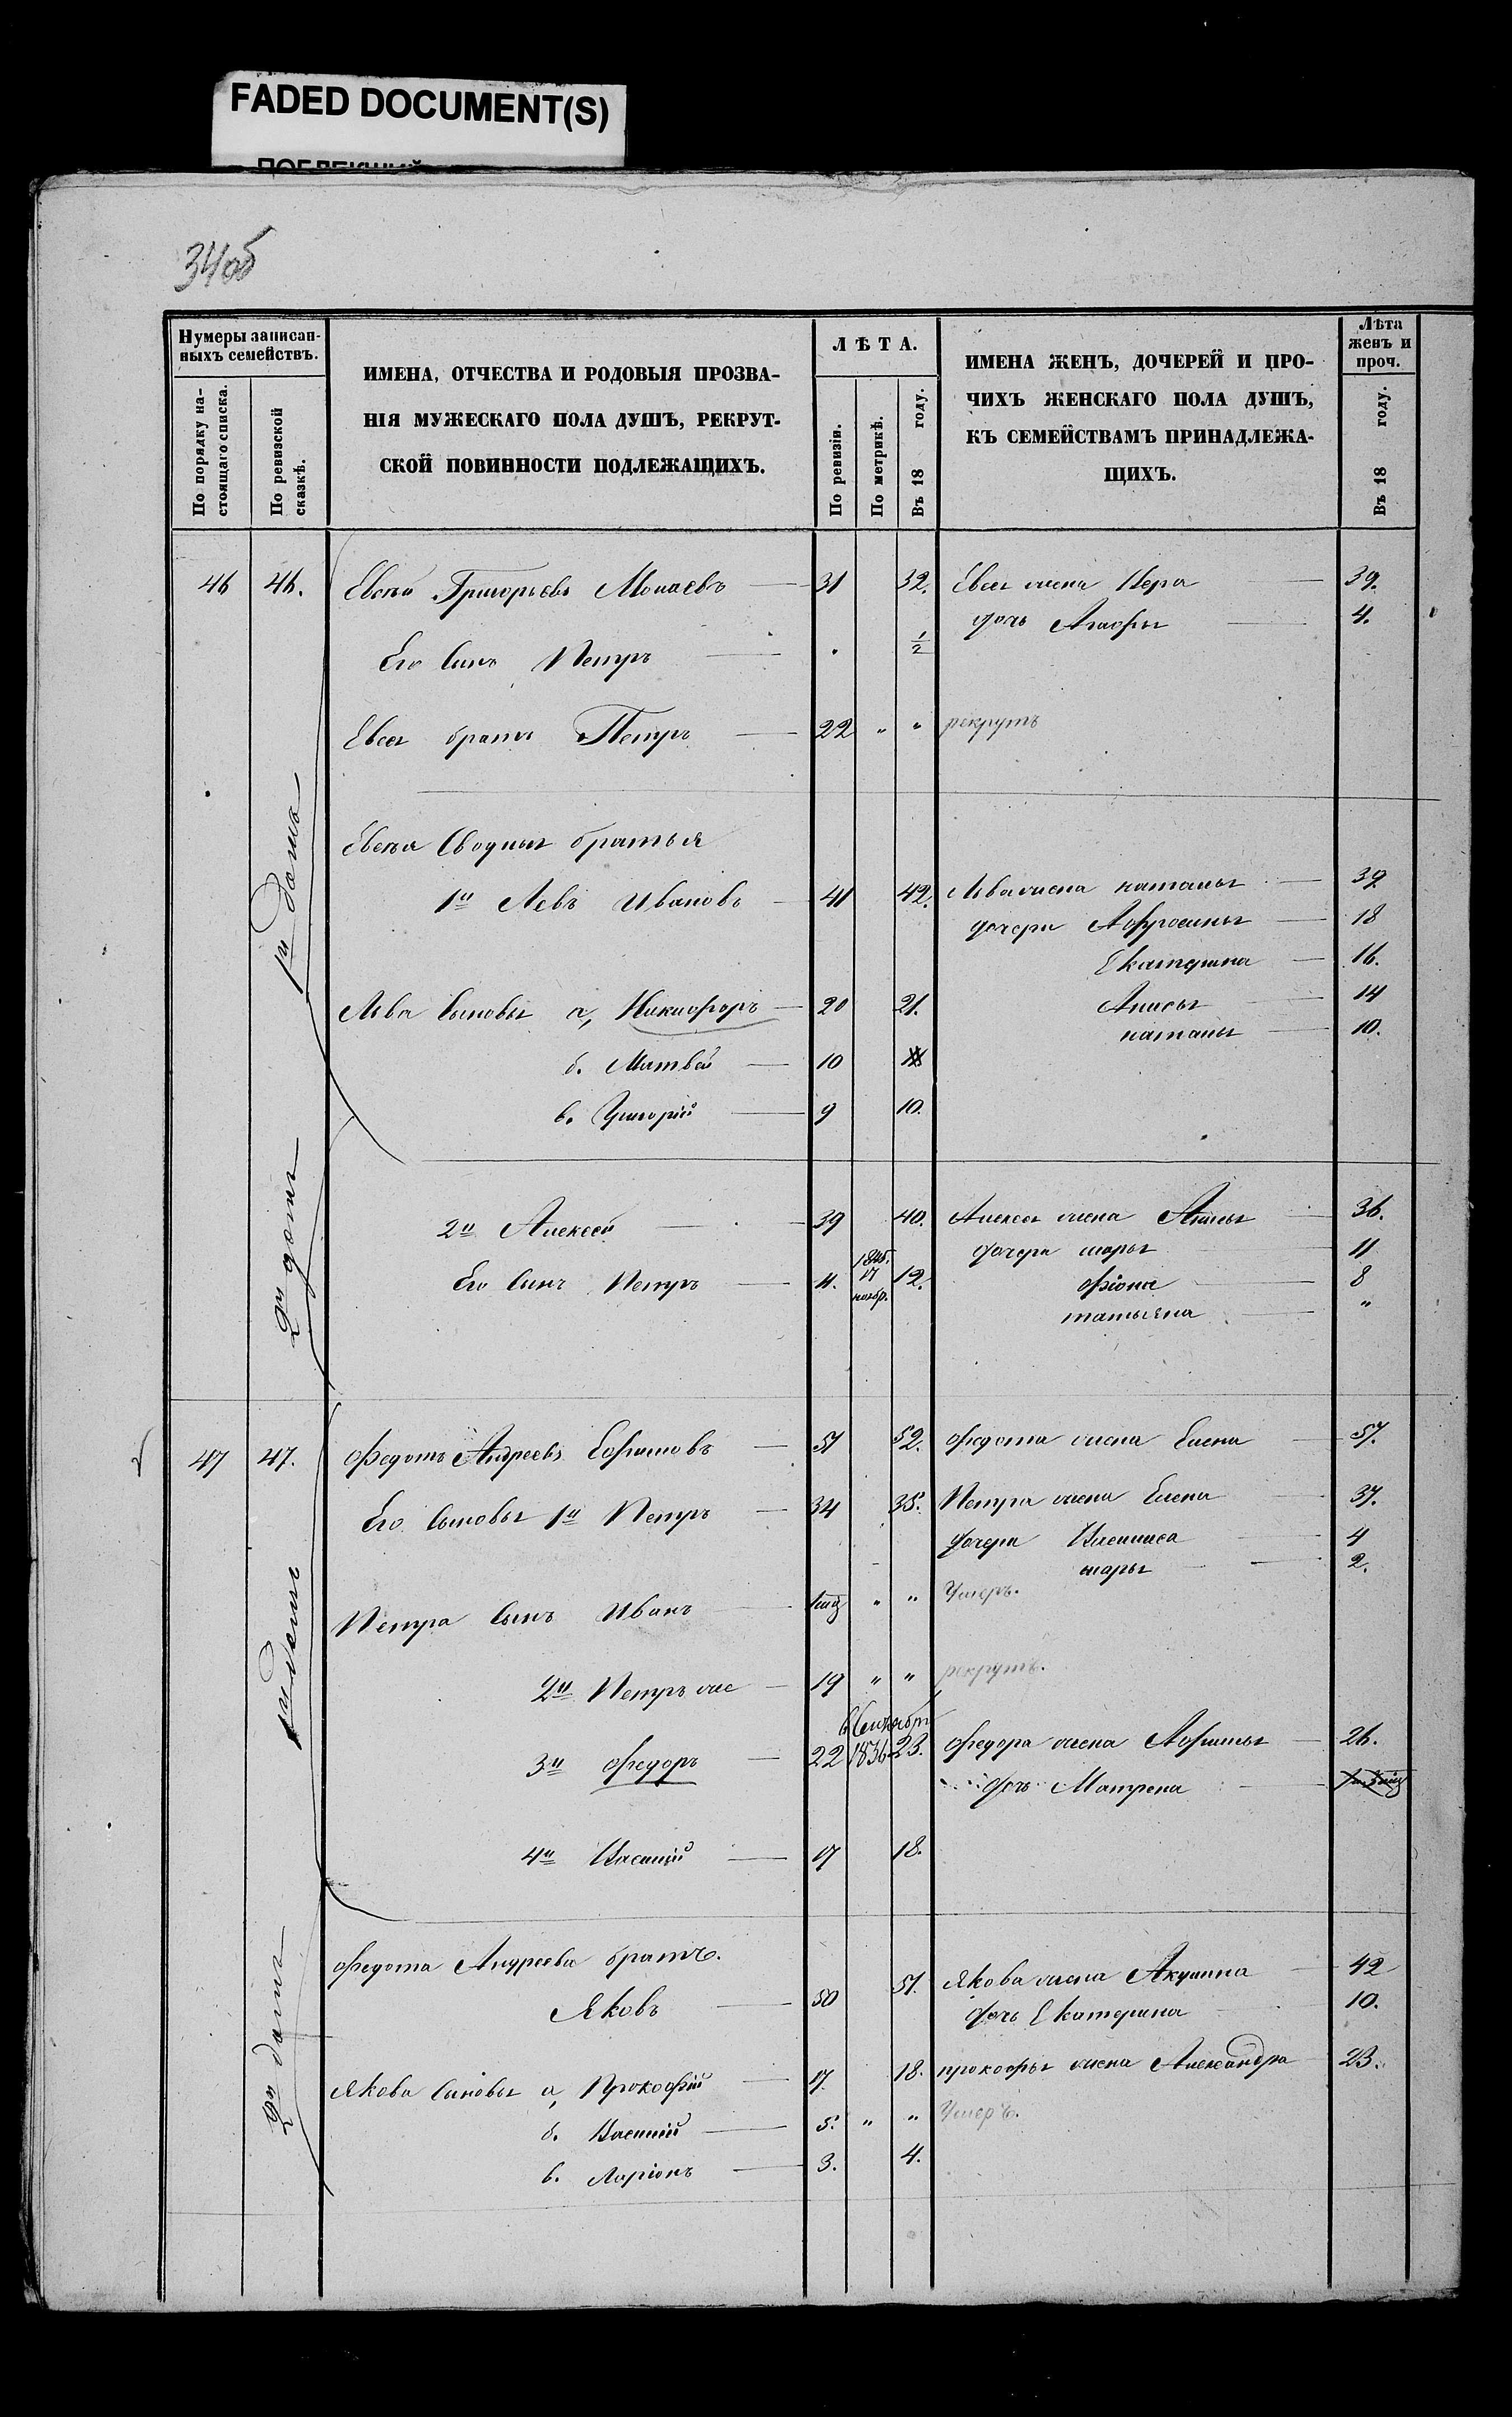 FADED DOCUMENT(S)
34об
Нумеры записан-
ныхъ семействъ.
По порядку на-
стоящаго списка.
По ревизской
сказкѣ.
ИМЕНА, ОТЧЕСТВА И РОДОВЫЯ ПРОЗВА-
НІЯ МУЖЕСКАГО ПОЛА ДУШЪ, РЕКРУТ-
СКОЙ ПОВИННОСТИ ПОДЛЕЖАЩИХЪ.
ЛѢТА.
По ревизіи.
По метрикѣ.
Въ 18 году.
ИМЕНА ЖЕНЪ, ДОЧЕРЕЙ И ПРО-
ЧИХЪ ЖЕНСКАГО ПОЛА ДУШЪ,
КЪ СЕМЕЙСТВАМЪ ПРИНАДЛЕЖА-
ЩИХЪ.
Лѣта
женъ и
проч.
Въ 18 году.
46 46. Григорьевъ 31 32. жена 39.
дочь 4.
Его Сынъ Петръ 1/2
братъ Петръ 22 " " рекрутъ
1й домъ
Сводныя братья
1й Левъ Ивановъ 41 42. Льва жена 39
дочери 18
Екатерина 16.
Льва Сыновья а, Никифоръ 20 21. Анисья 14
10.
б. Матвей 10
в. Григорій 9 10.
2й домъ
2й Алексей 39 40. Алексея жена 36.
дочери марья 11
Его Сынъ Петръ 11. 17 ноябр. 12. фіона 8
татьяна "
47 47. Федотъ Андреевъ Ефимовъ 51 52. Федота жена Елена 57.
Его Сыновья 1й Петръ 34 35. Петра жена Елена 37.
дочери Василиса 4
марья 2.
Петра Сынъ Иванъ " " Умеръ.
1й домъ
2й Петръ же 19 " " рекрутъ.
3й Федоръ 22 1836 23. Федора жена 26.
дочь Матрена
4й Василій 17 18.
2й домъ
Федота Андреева братъ.
Яковъ 50 51. Якова жена Акулина 42
дочь Екатерина 10.
Якова Сыновья а, Прокофій 17. 18. прокофья жена Александра 23.
б. Василій 5. " " Умеръ.
в. Ларіонъ 3. 4.